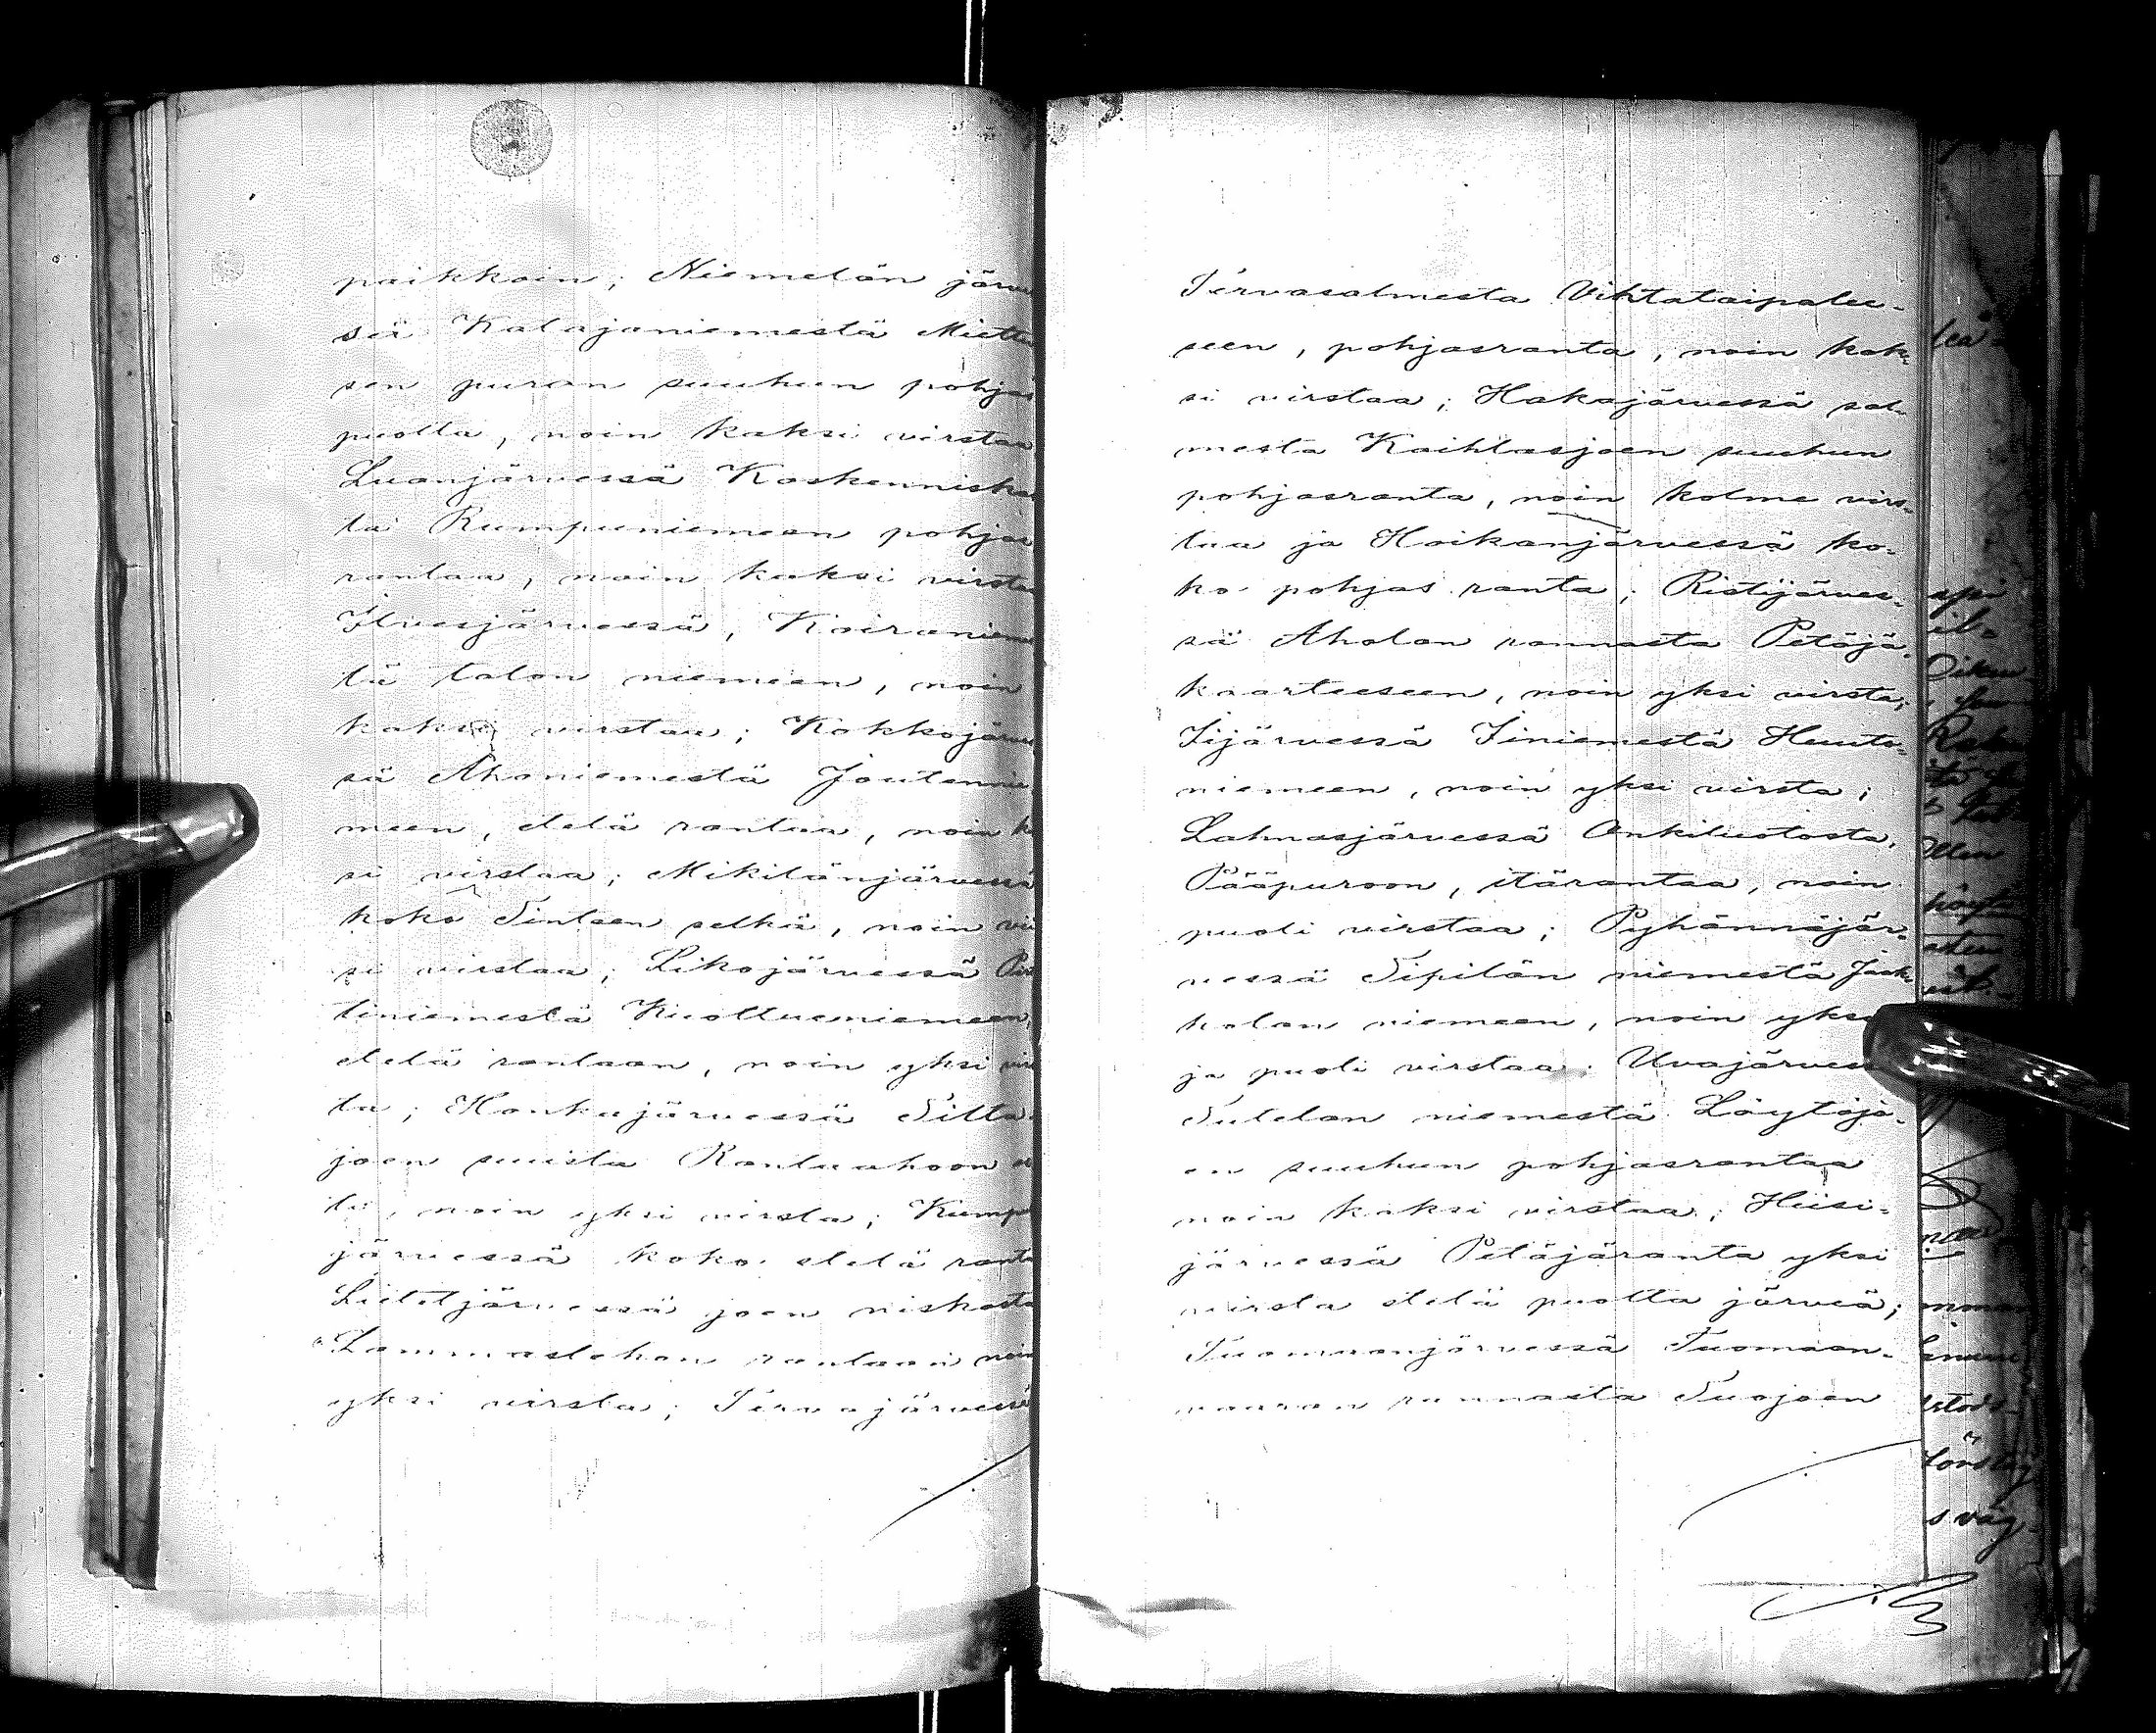 paikkoin; Niemelän järve
sä Kalajaniemestä Miettu
sen puron suuhun pohjas
puolta, noin kaksi virstaa
Luanjärvessä Koskenniska
ta Rumpuniemeen pohjas
rantaa, noin kaksi virstaa
Ilvesjärvessä, Koiranieme
tä talon niemeen, noin
kaksi virstaa; Kokkojärve
sä Ahoniemestä Joutennie
meen, etelä rantaa, noin k
si virstaa; Mikitänjärvessä
koko Sinteen selkä, noin vii
si virstaa; Likojärvessä
tiniemestä Kuolluniemeen,
etelä rantaan, noin yksi virs
ta; Honkajärvessä Silta
joen suusta Rantaahoon
tä, noin yksi virsta; Kump
järvessä koko etelä ranta
Lietejärvessä joen niskasta
Lammaslehon rantaan noin
yksi virsta; Tervajärvessä
Tervasalmesta Vihtataipalee-
seen, pohjasranta, noin kak-
si virstaa; Hakajärvessä sal-
mesta Kaihlasjoen suuhun
pohjasranta, noin kolme virs-
taa ja Hoikanjärvessä ko-
ko pohjas ranta; Ristijärves-
sä Aholan rannasta Petäjä-
kaarteeseen, noin yksi virsta;
Iijärvessä Iiniemestä Huuto-
niemeen, noin yksi virsta;
Lahnasjärvessä Ankiluotosta,
Pääpuroon, itärantaa, noin
puoli virstaa; Pyhännäjär-
vessä Sipilän niemestä Jaak-
kolan niemeen, noin yksi
ja puoli virstaa; Uvajärves
Sutelan niemestä Löytöjo-
en suuhun pohjasrantaa
noin kaksi virstaa; Hiisi-
järvessä Petäjäranta yksi
virsta etelä puolta järveä;
Tuomaanjärvessä Tuomaan-
vaaran rannasta Suojoen